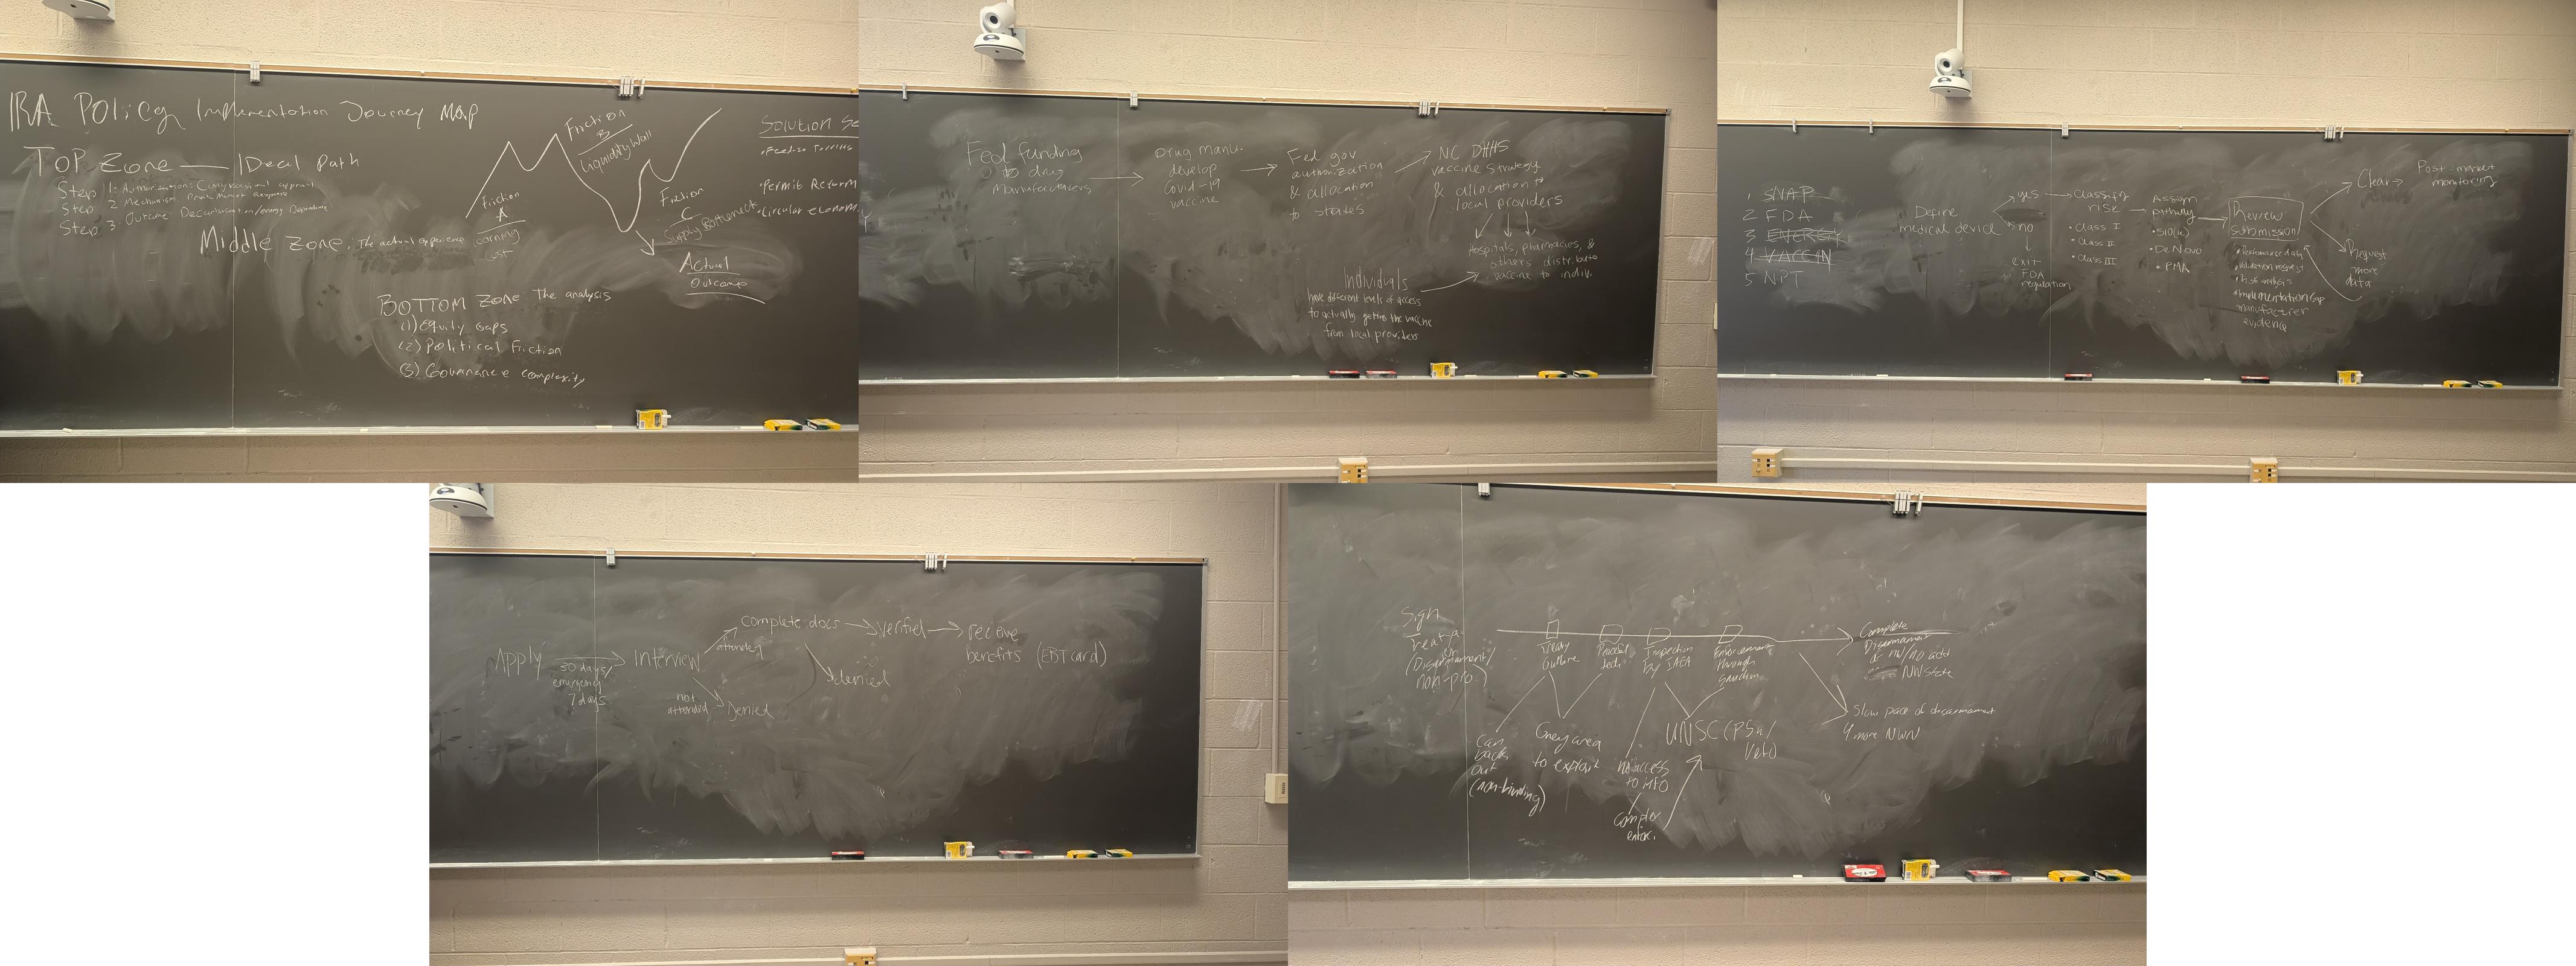 IRA Policy Implementation Journey Map
TOP Zone — IDeal Path
Step 1: Authorization: Congressional approval
Step 2 Mechanism
Step 3: Outcome Decarbonization/energy
Middle Zone: The actual experience
Friction
A
Learning
Cost
Friction
B
Liquidity Wall
Friction
C
Supply Bottleneck
Actual
Outcome
Solution Se
• Feed-in Tariffs
• Permit Reform
• Circular econom
BOTTOM Zone The analysis
(1) Equity Gaps
(2) Political Friction
(3) Governance complexity
Fed funding
to drug
manufacturers
Drug manu.
develop
Covid-19
vaccine
Fed gov
authorization
& allocation
to states
NC DHHS
vaccine strategy
& allocation to
local providers
Hospitals, pharmacies, &
others distribute
vaccine to indiv.
Individuals
have different levels of access
to actually getting the vaccine
from local providers
1 SNAP
2 FDA
3 ENERGY
4 VACCIN
5 NPT
Define
medical device
yes
no
exit
FDA
regulation
Classify
risk
• Class I
• Class II
• Class III
Assign
pathway
• 510(k)
• De Novo
• PMA
Review
submission
• Performance data
• Validation request
• Risk analysis
• Implementation Gap
manufacturer
evidence
Clear
Post-market
monitoring
Request
more
data
Apply
30 days/
emergency
7 days
Interview
attended
not
attended
Denied
complete docs
denied
verified
recieve
benefits (EBT card)
Sign
Treaty
(Disarmament/
non-pro)
Treaty
Culture
Inspection
by IAEA
Enforcement
through
Sanction
Complete
Disarmament
of NW/no add
NW state
Slow pace of disarmament
4 more NWN
Can
back
out
(non-binding)
Grey area
to exploit
no access
to info
UNSC (P5 w/
Veto)